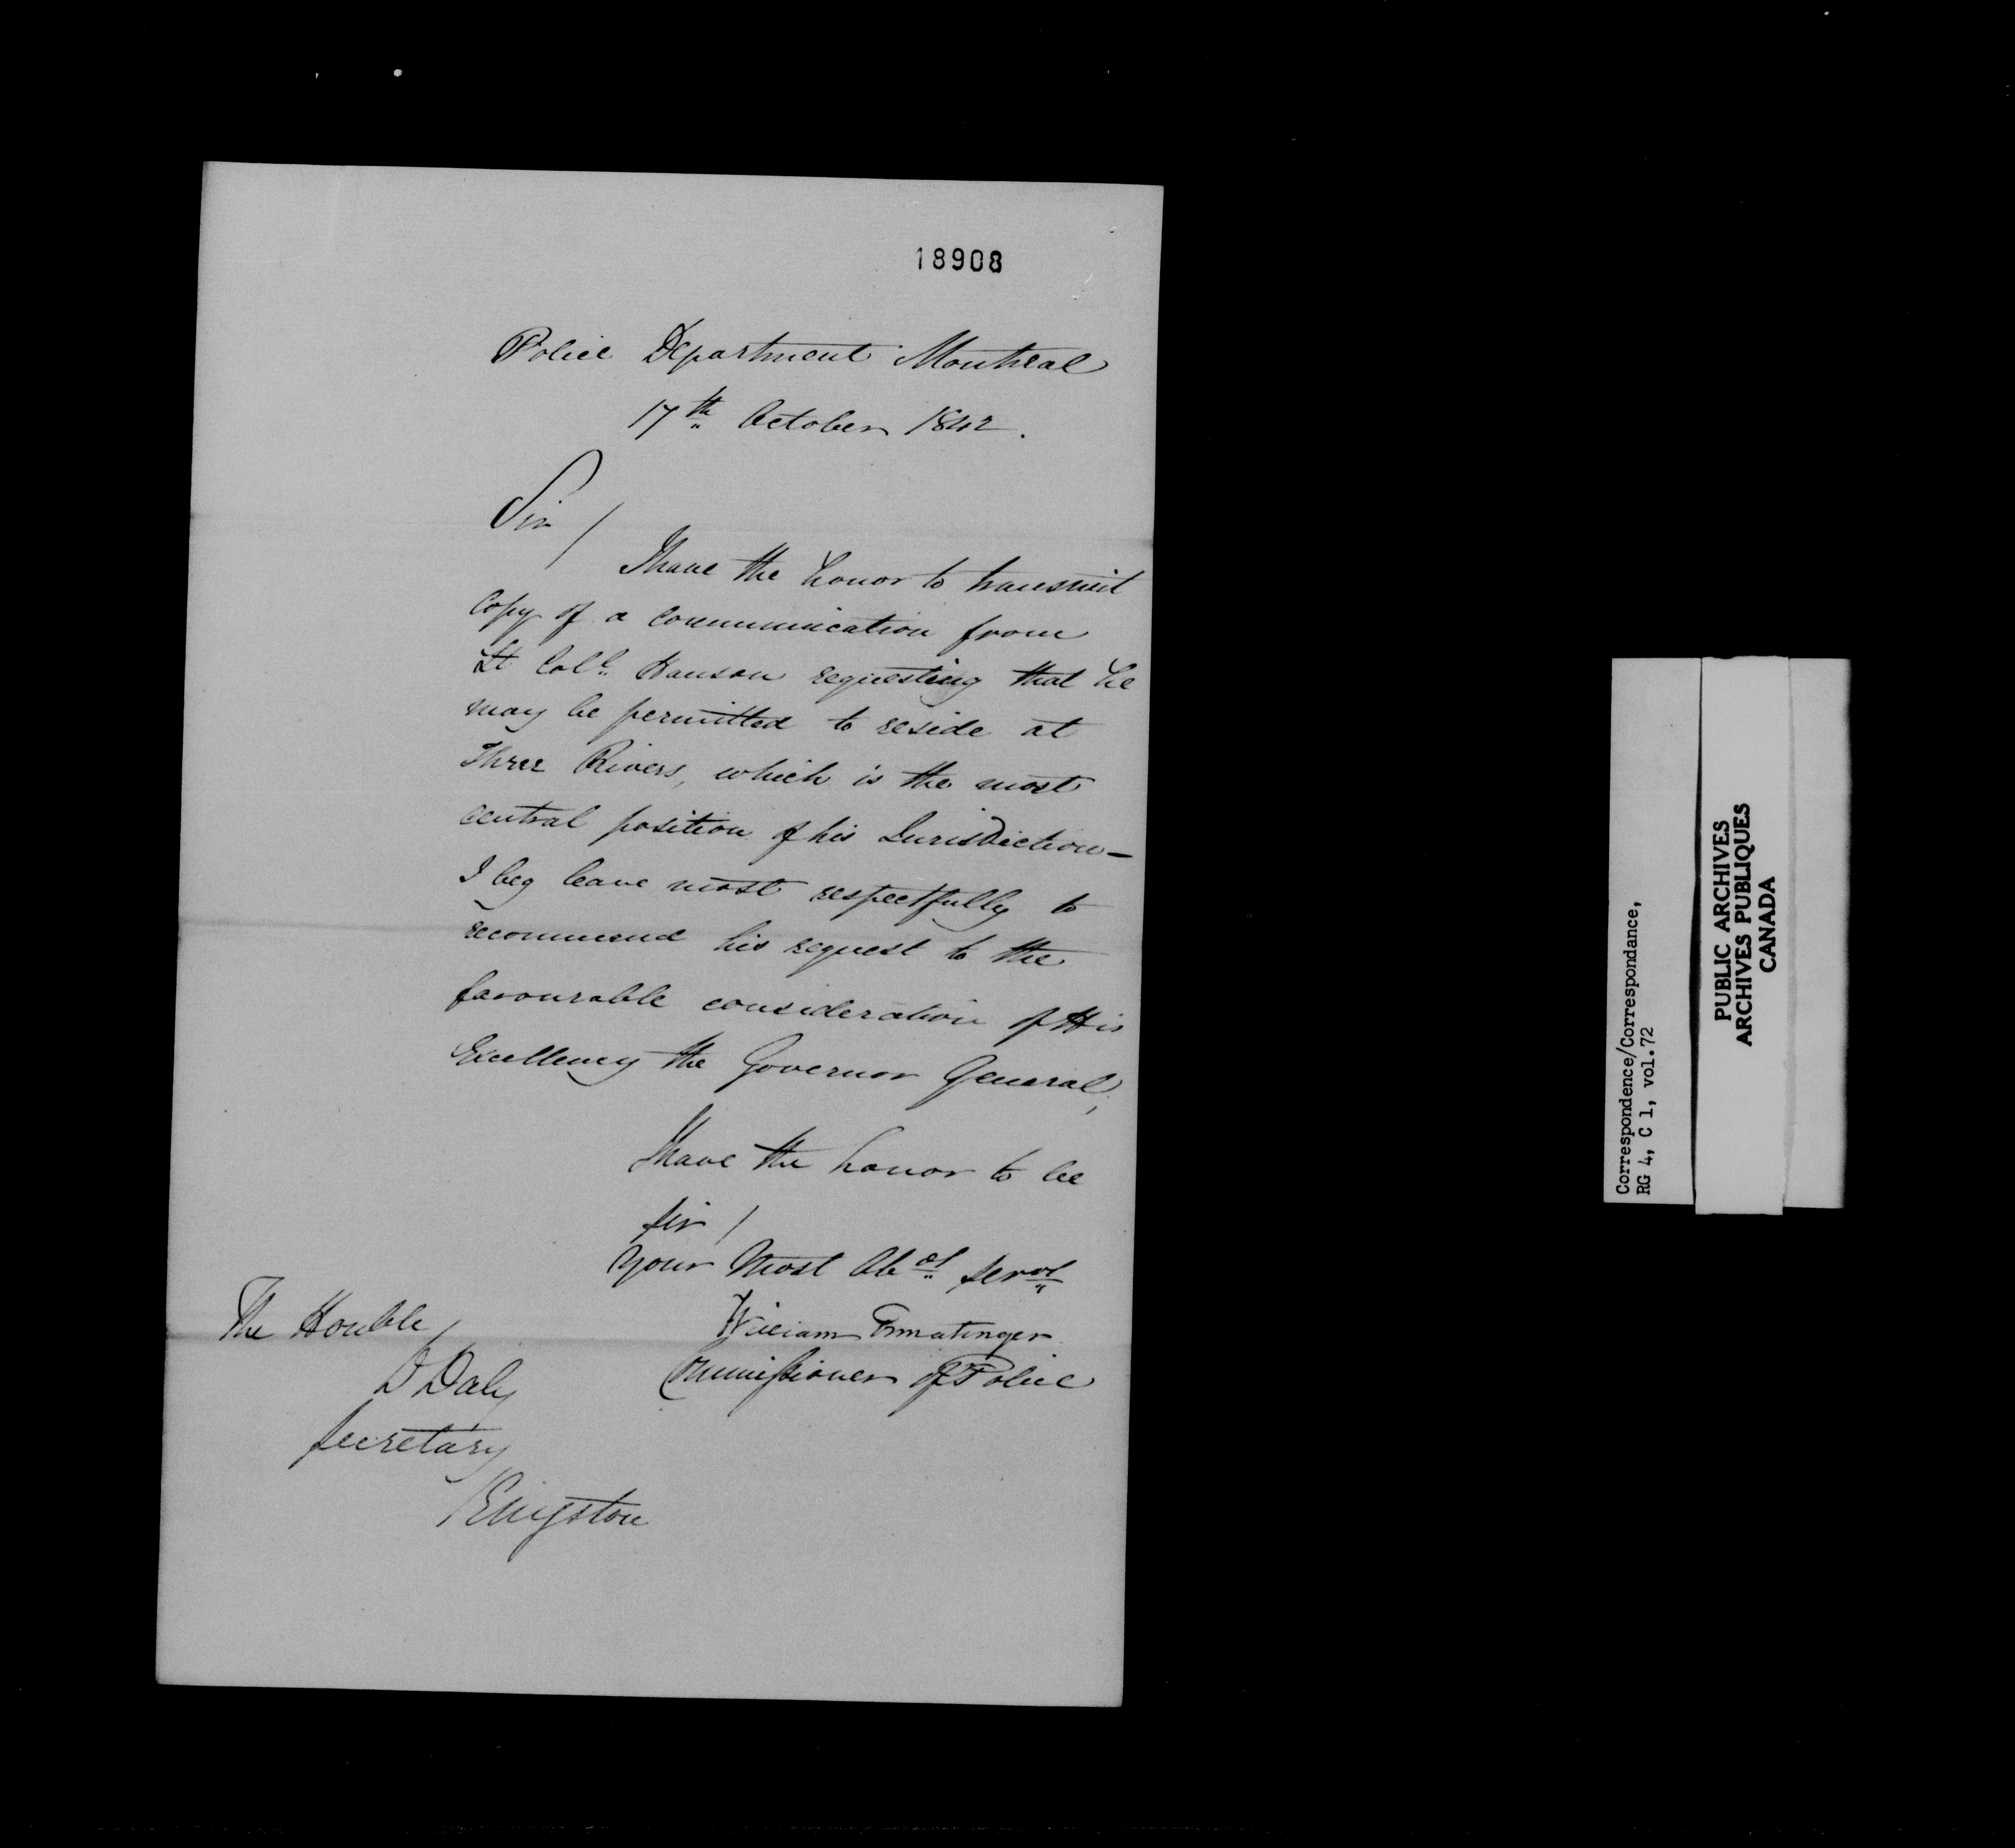 18908
Police Department Montreal
17th October 1842.
Sir /
I have the honor to transmit
Copy of a Communication from
Lt Coll. Hanson requesting that he
may be permitted to reside at
Three Rivers, which is the most
central position of his Jurisdiction -
I beg leave most respectfully to
recommend his request to the
favourable consideration of His
Excellency the Governor General,
I have the honor to be
Sir /
Your Most Obet Servt
William Ermatinger
Commissioner of Police
The Honble /
D Daly
Secretary
Kingston
Correspondence/Correspondance,
RG 4, C 1, vol.72
PUBLIC ARCHIVES
ARCHIVES PUBLIQUES
CANADA